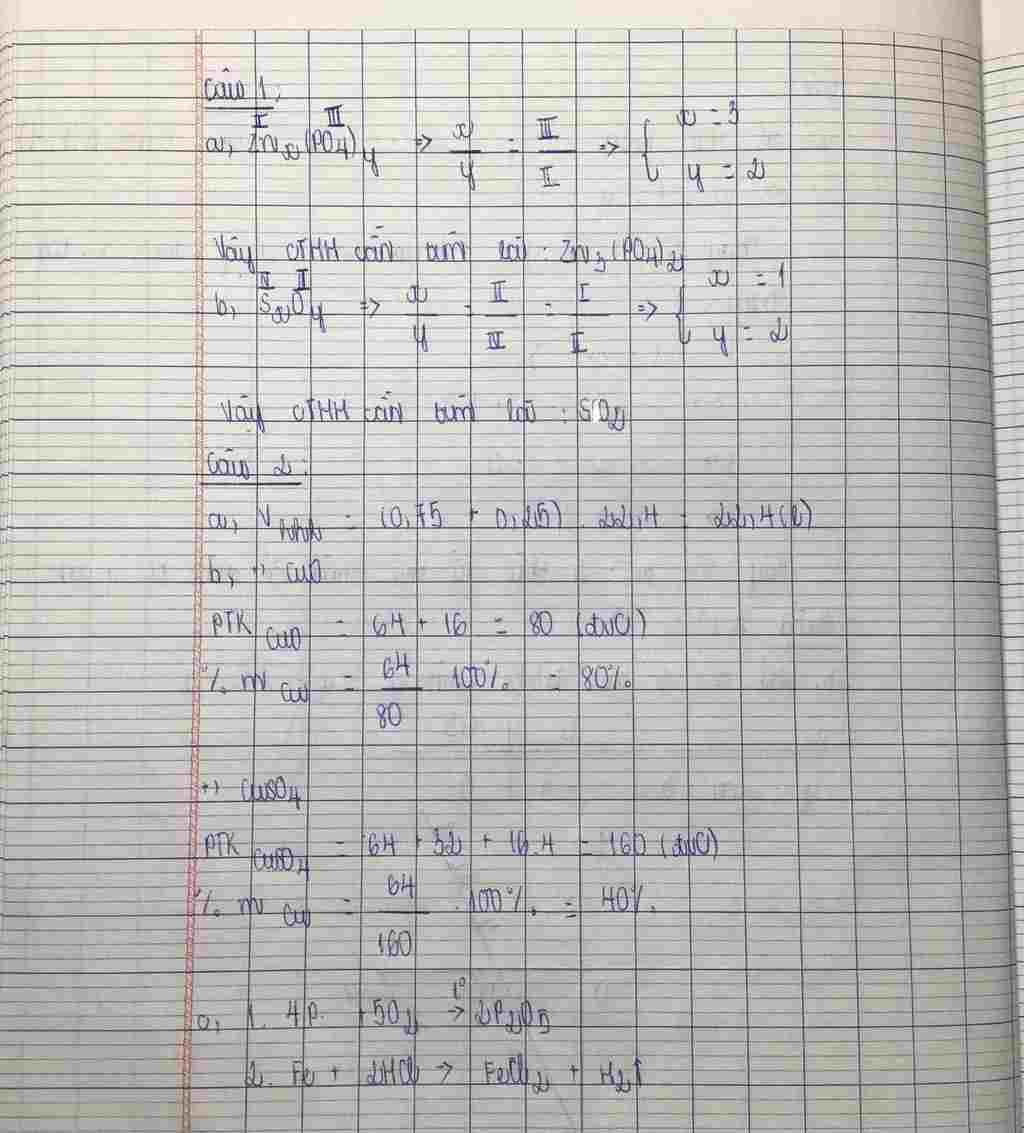 Câu 1:
II III
a, Znx(PO4)y => x/y = III/II => { x = 3
y = 2
Vậy CTHH cần tìm là: Zn3(PO4)2
IV II
b, SxOy => x/y = II/IV = I/II => { x = 1
y = 2
Vậy CTHH cần tìm là: SO2
Câu 2:
a, Vhh = (0,75 + 0,25) . 22,4 = 22,4 (l)
b, +) CuO
PTK CuO = 64 + 16 = 80 (đvC)
% m Cu = 64/80 . 100% = 80%
+) CuSO4
PTK CuSO4 = 64 + 32 + 16.4 = 160 (đvC)
% m Cu = 64/160 . 100% = 40%
c, 1. 4P + 5O2 t° → 2P2O5
2. Fe + 2HCl → FeCl2 + H2↑